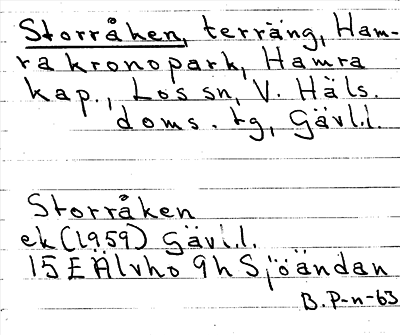 Storråken, terräng, Ham-
ra kronopark, Hamra
kap., Los sn, V. Häls.
doms. tg, Gävl.l.
Storråken
ek (1959) Gävl.l.
15E Älvho 9h Sjöändan
B. P-n-63